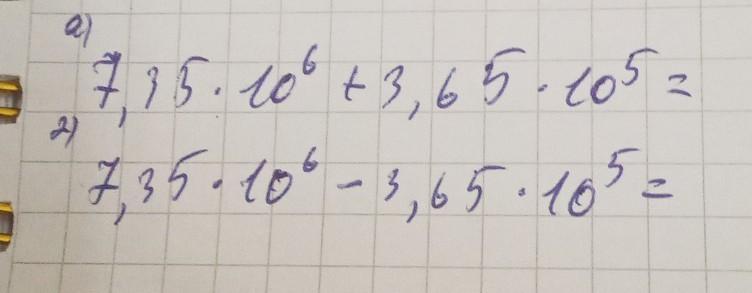 а)
7,35 · 10⁶ + 3,65 · 10⁵ =
г)
7,35 · 10⁶ - 3,65 · 10⁵ =